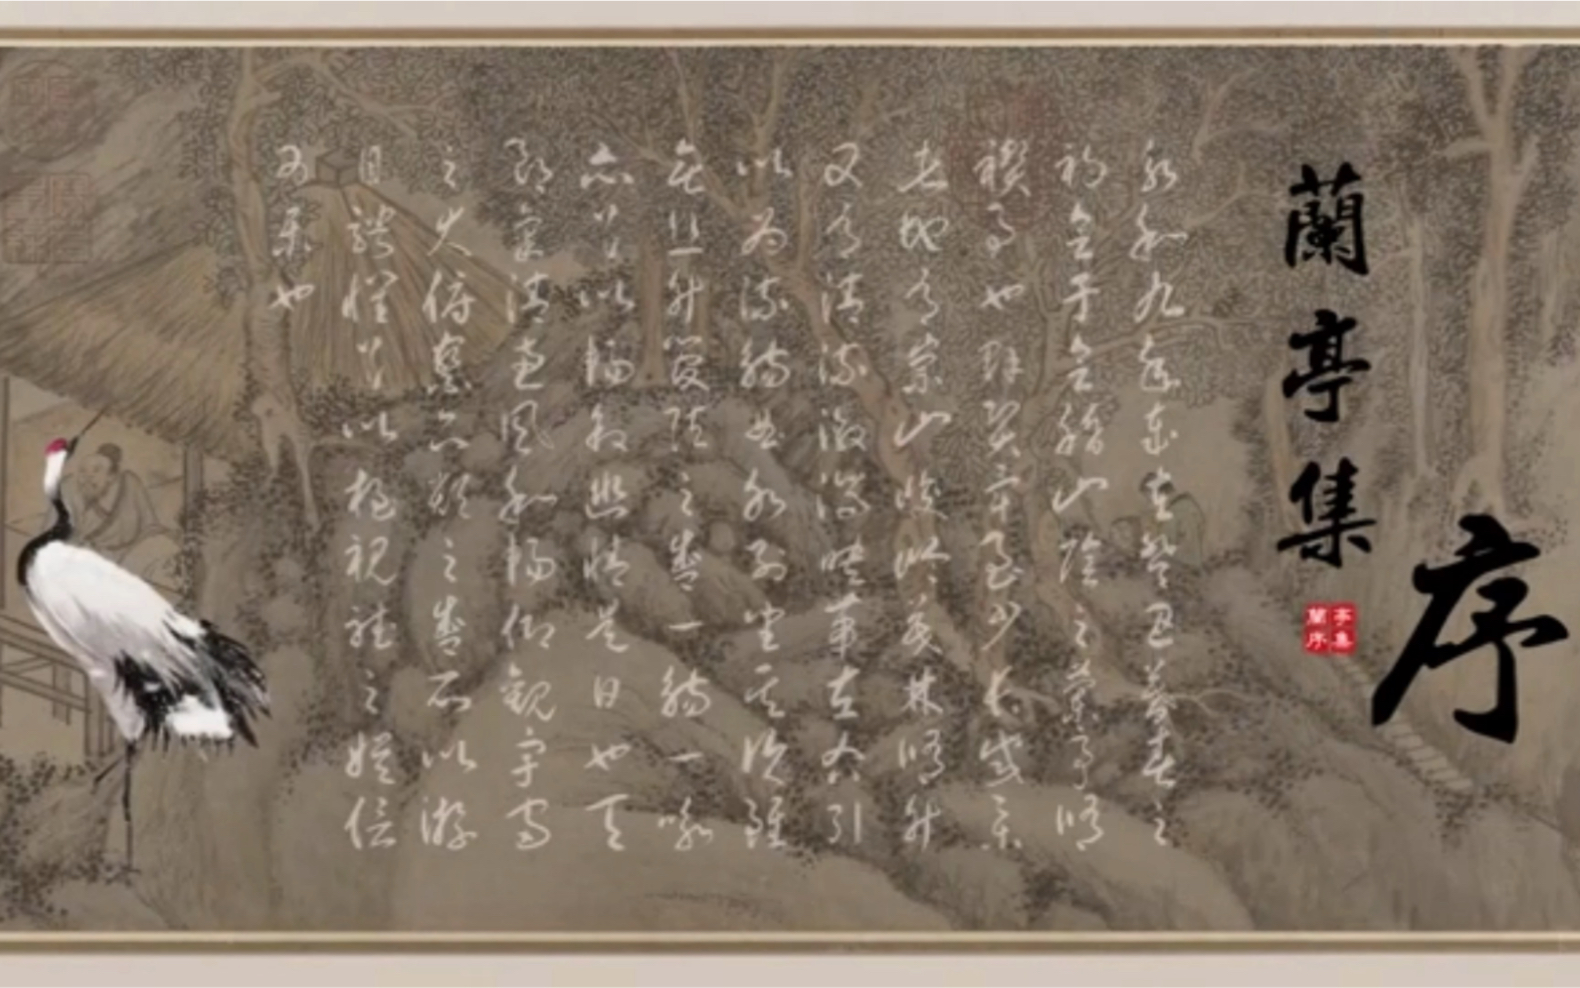 蘭亭集
序
蘭亭
序集
永和九年歲在癸丑暮春之
初會于會稽山陰之蘭亭脩
禊事也群賢畢至少長咸集
此地有崇山峻嶺茂林脩竹
又有清流激湍映帶左右引
以為流觴曲水列坐其次雖
無絲竹管弦之盛一觴一詠
亦足以暢敘幽情是日也天
朗氣清惠風和暢仰觀宇宙
之大俯察品類之盛所以游
目騁懷足以極視聽之娛信
可樂也